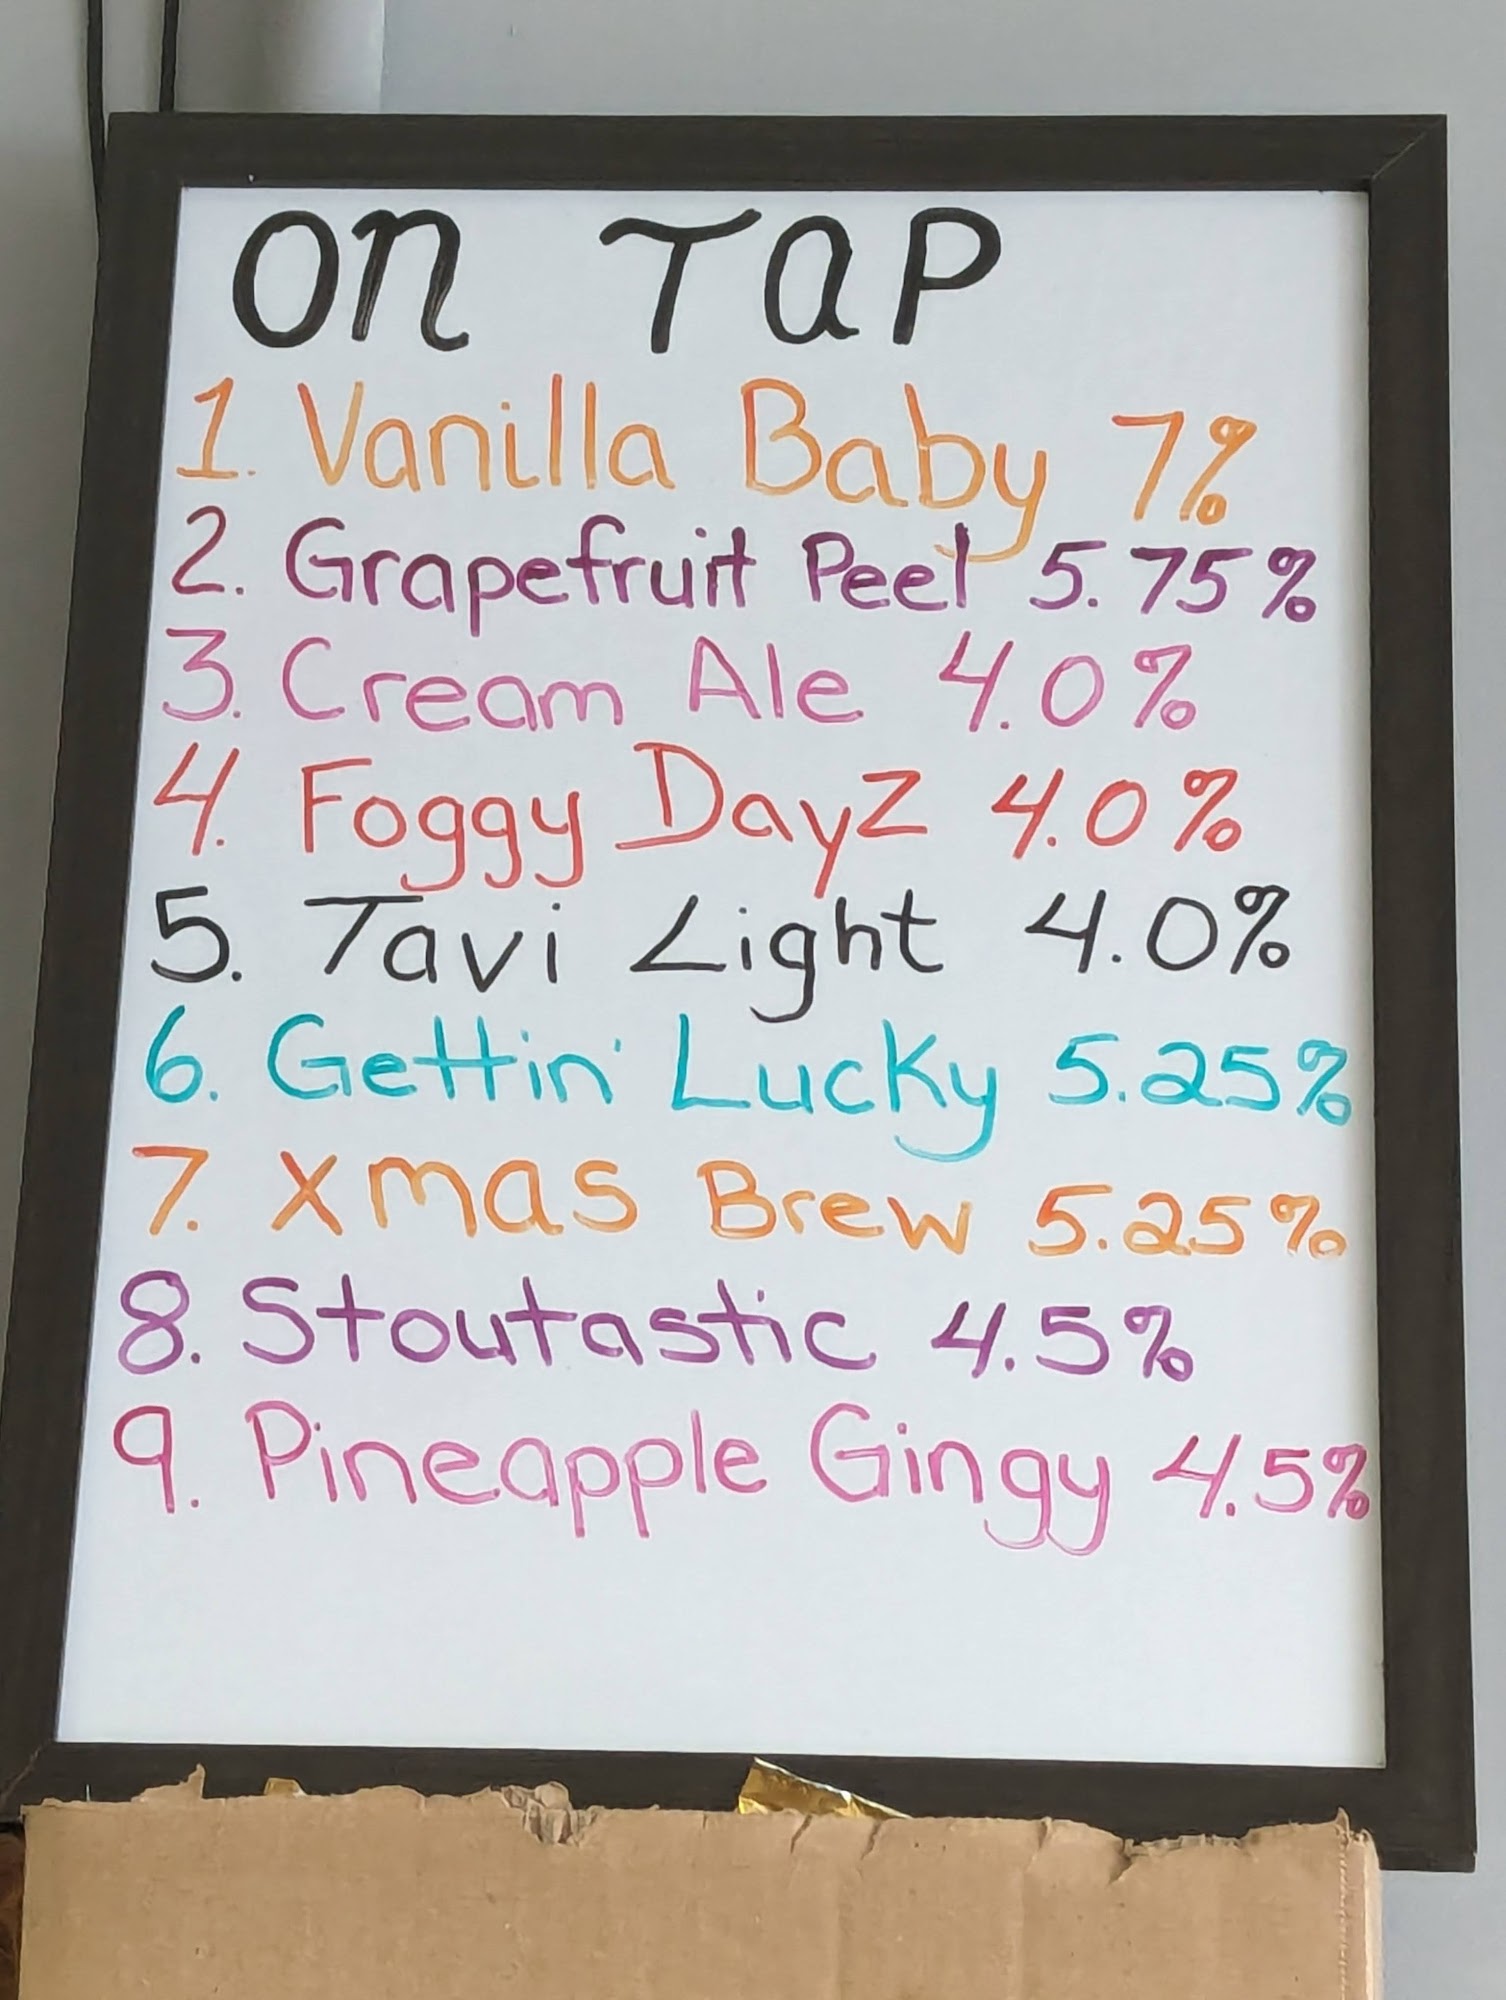 On Tap
1. Vanilla Baby 7%
2. Grapefruit Peel 5.75%
3. Cream Ale 4.0%
4. Foggy Dayz 4.0%
5. Tavi Light 4.0%
6. Gettin' Lucky 5.25%
7. Xmas Brew 5.25%
8. Stoutastic 4.5%
9. Pineapple Gingy 4.5%